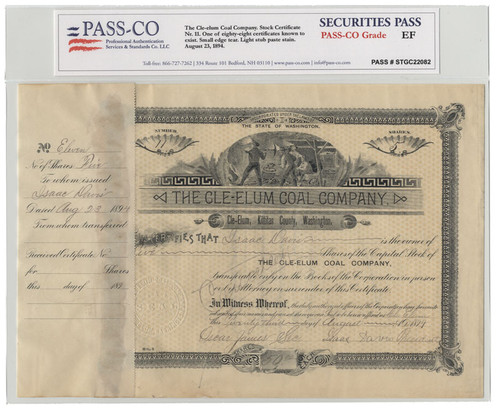 PASS-CO
Professional Authentication
Services & Standards Co. LLC
The Cle-elum Coal Company. Stock Certificate
Nr. 11. One of eighty-eight certificates known to
exist. Small edge tear. Light stub paste stain.
August 23, 1894.
SECURITIES PASS
PASS-CO Grade EF
Toll-free: 866-727-7262 | 334 Route 101 Bedford, NH 03110 | www.pass-co.com | info@pass-co.com
PASS # STGC22082
No. Eleven
No. of Shares
To whom issued
Isaac Davis
Dated Aug 23 1894
From whom transferred
Received Certificate No.
for Shares
this day of 189
NUMBER
11
THE STATE OF WASHINGTON.
THE CLE-ELUM COAL COMPANY.
Cle-Elum, Kittitas County, Washington.
CERTIFIES THAT Isaac Davis is the owner of
Shares of the Capital Stock of
THE CLE-ELUM COAL COMPANY.
transferable only on the Books of the Corporation in person
or by Attorney on surrender of this Certificate.
In Witness Whereof,
twenty third day of August 1894
Oscar James Sec
Isaac Davis